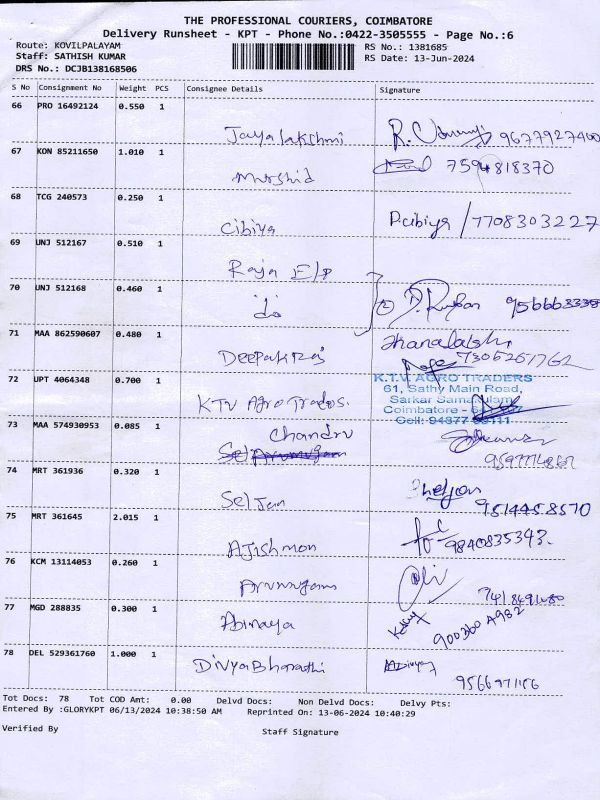 THE PROFESSIONAL COURIERS, COIMBATORE
Delivery Runsheet - KPT - Phone No.:0422-3505555 - Page No.:6
Route: KOVILPALAYAM RS No.: 1381685
Staff: SATHISH KUMAR RS Date: 13-Jun-2024
DRS No.: DCJB138168506
S No Consignment No Weight PCS Consignee Details Signature
66 PRO 16492124 0.550 1
Jayalakshmi R. 9677927400
67 KON 85211650 1.010 1
Murshid 7594818370
68 TCG 240573 0.250 1
Cibiya P.cibiya / 7708303227
69 UNJ 512167 0.510 1
Raja E/P
70 UNJ 512168 0.460 1
do 2
71 MAA 862590607 0.480 1
Deepak Raj 7305261762
72 UPT 4064348 0.700 1
KTV Agro Trades. K.T.V. AGRO TRADERS
61, Sathy Main Road,
Sarkar Samakulam
Coimbatore -
Cell: 94877
73 MAA 574930953 0.085 1
Chandru
74 MRT 361936 0.320 1
Seljan 9514458570
75 MRT 361645 2.015 1
Ajishmon 9840835343.
76 KCM 13114053 0.260 1
Arumugam
77 MGD 288835 0.300 1
Abinaya
78 DEL 529361760 1.000 1
DivyaBharathi
Tot Docs: 78 Tot COD Amt: 0.00 Delvd Docs: Non Delvd Docs: Delvy Pts:
Entered By :GLORYKPT 06/13/2024 10:38:50 AM Reprinted On: 13-06-2024 10:40:29
Verified By Staff Signature